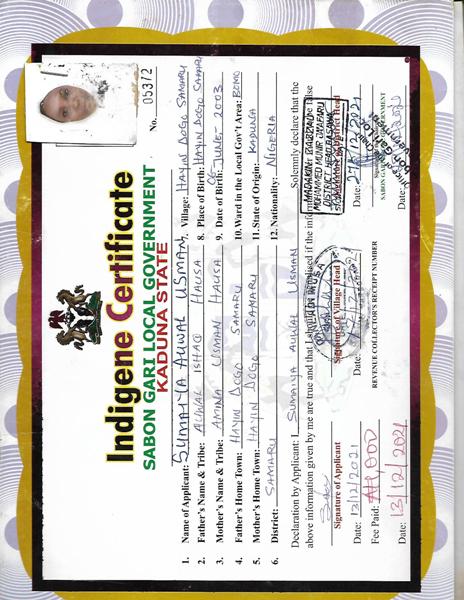 No. 05372
Indigene Certificate
SABON GARI LOCAL GOVERNMENT
KADUNA STATE
1. Name of Applicant: SUMAIYA AUWAL USMAN, Village: HAYIN DOGO SAMARU
2. Father's Name & Tribe: AUWAL ISHAQ HAUSA 8. Place of Birth: HAYIN DOGO SAMARU
3. Mother's Name & Tribe: AMINA USMAN HAUSA 9. Date of Birth: JUNE 2003
4. Father's Home Town: HAYIN DOGO SAMARU 10. Ward in the Local Gov't Area: BOMO
5. Mother's Home Town: HAYIN DOGO SAMARU 11. State of Origin: KADUNA
6. District: SAMARU 12. Nationality: NIGERIA
Declaration by Applicant: I SUMAIYA AUWAL USMAN Solemnly declare that the
above information given by me are true and that I should be penalised if the information are false
MOHAMMED MUNIR
DISTRICT HEAD
Signature of Applicant Signature of Village Head Signature by District Head
Date: 13/12/2021 Date: Date: 12/2021
SABON GARI LOCAL GOVERNMENT
Fee Paid: REVENUE COLLECTOR'S RECEIPT NUMBER
Date: 13/12/2021